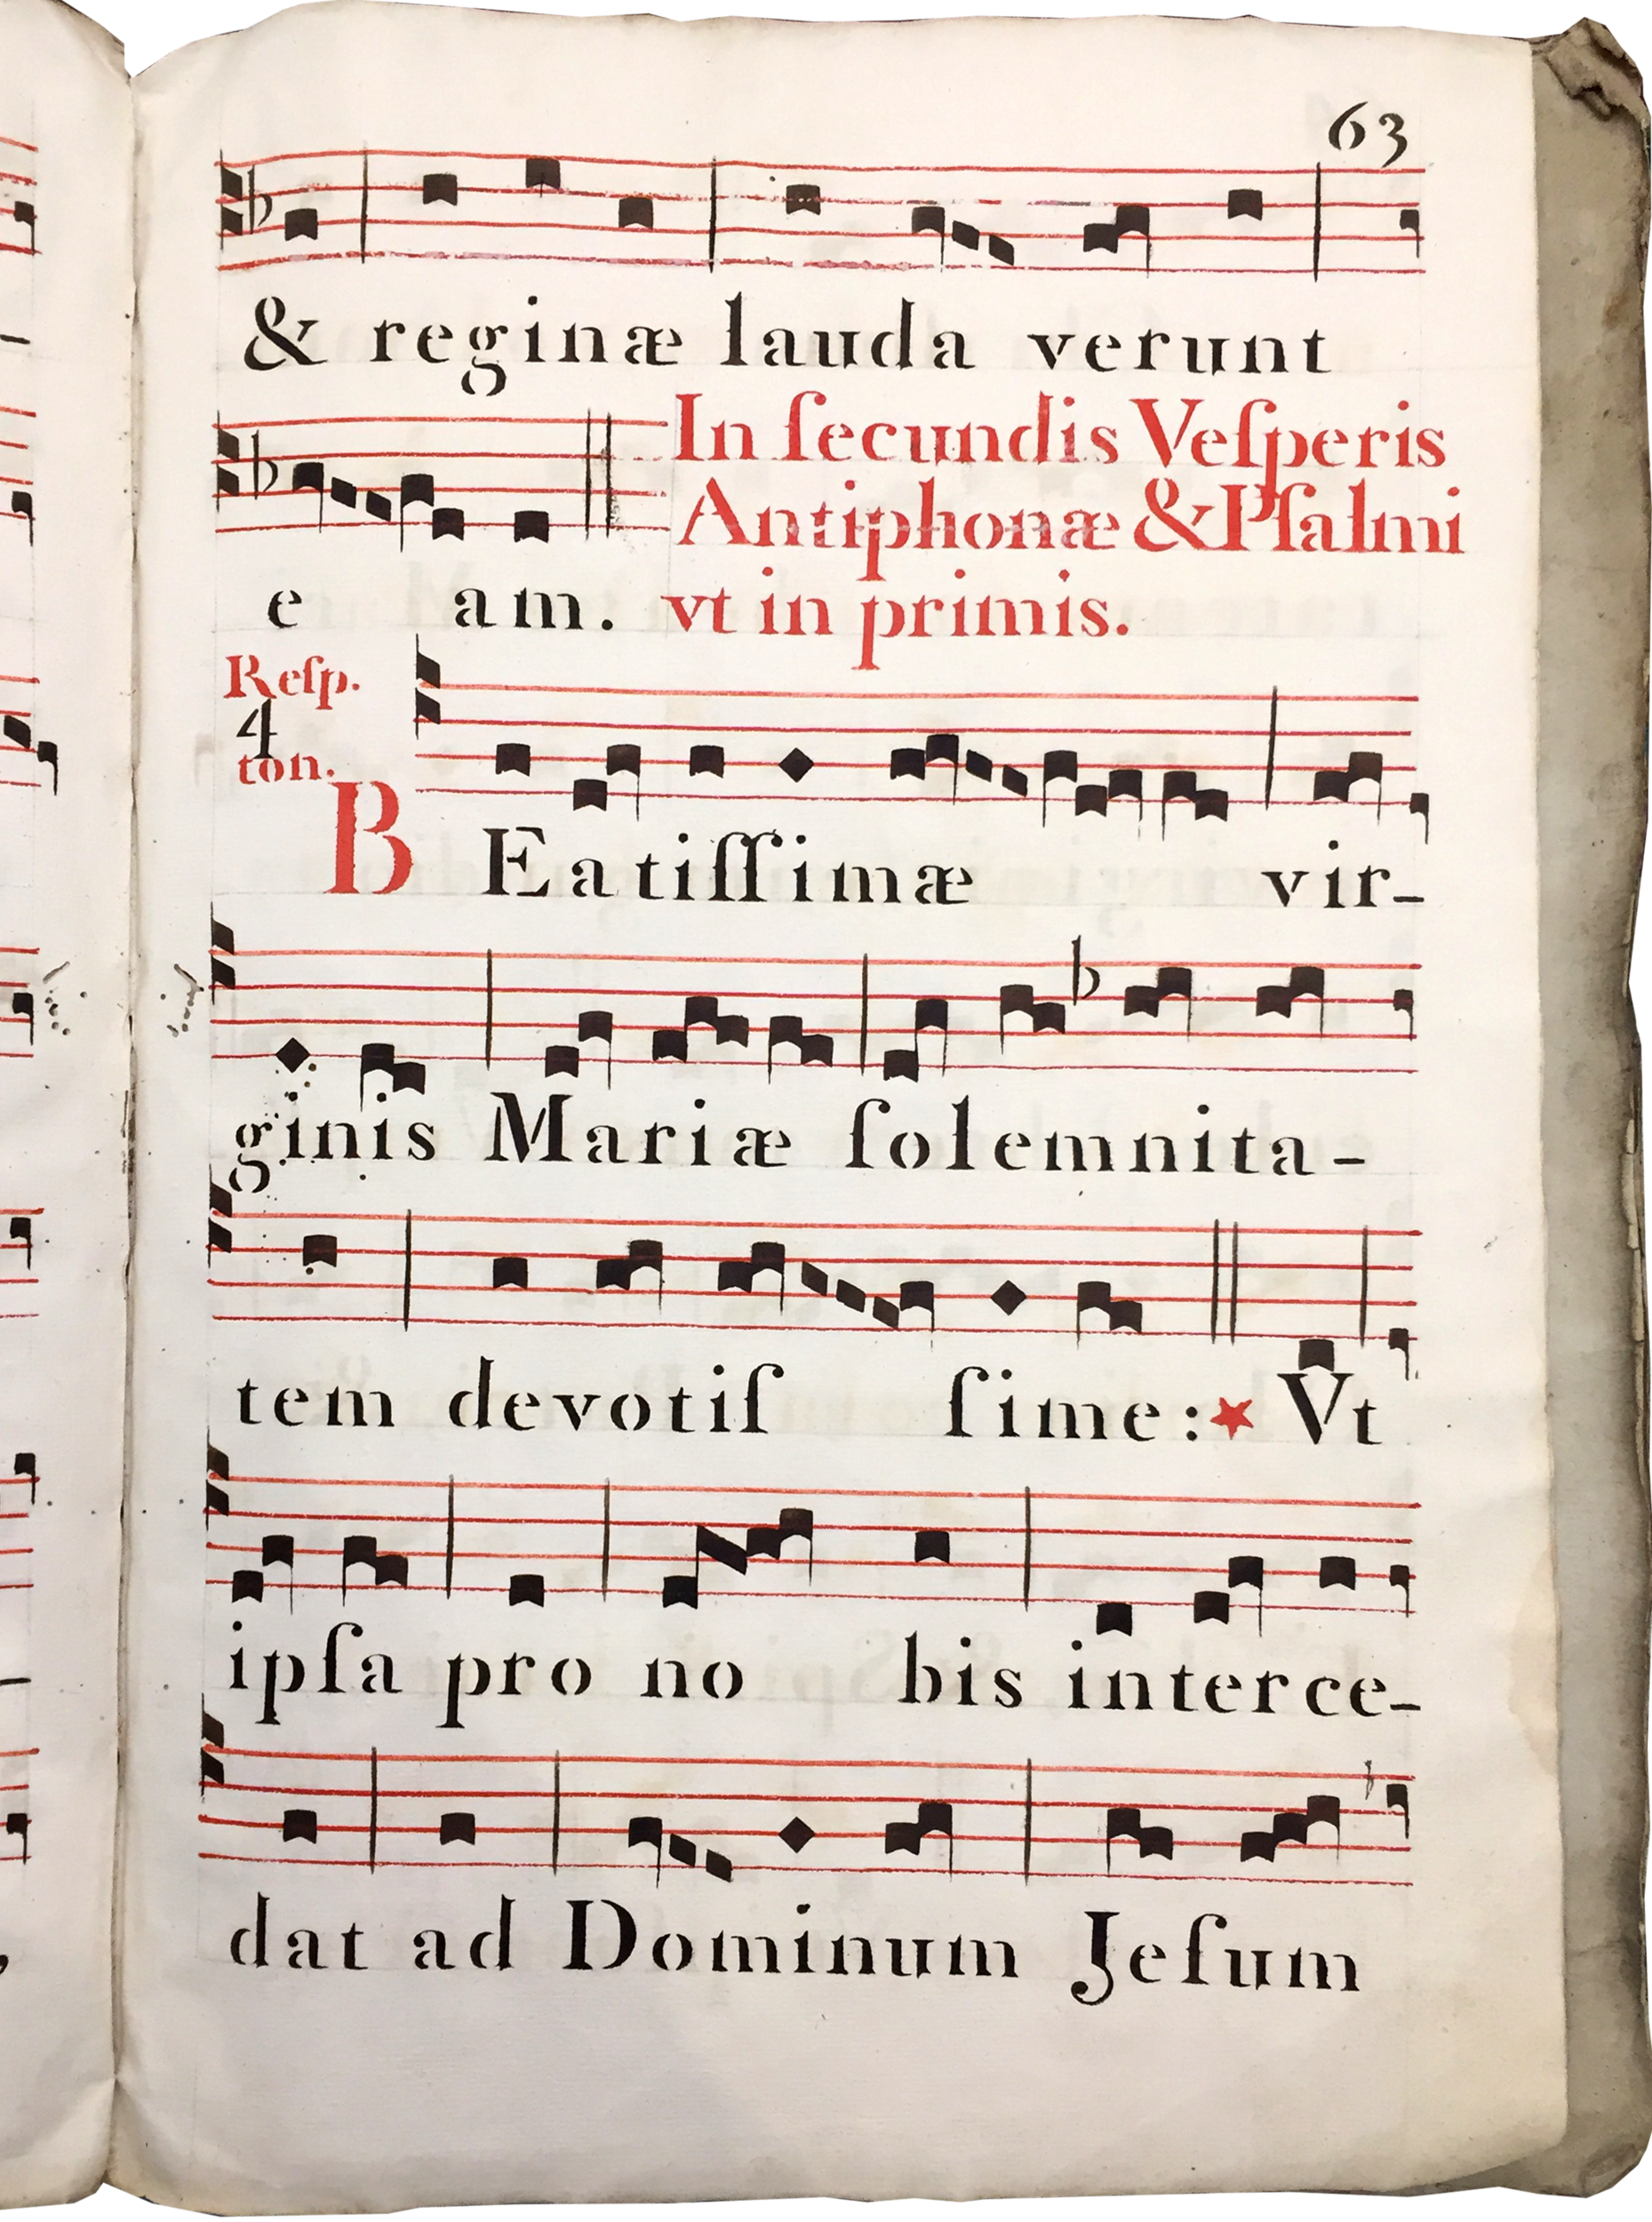 63
& reginæ lauda verunt
In ſecundis Veſperis
Antiphonæ & Pſalmi
e am. vt in primis.
Reſp.
4
ton.
BEatiſſimæ vir-
ginis Mariæ ſolemnita-
tem devotiſ ſime:★ Vt
ipſa pro no bis interce-
dat ad Dominum Jeſum